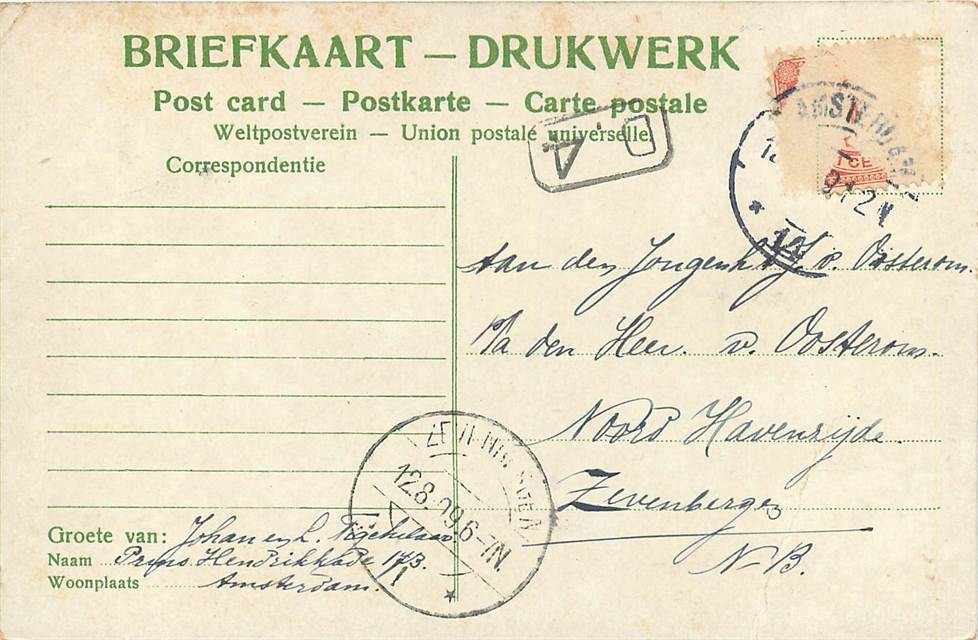 BRIEFKAART — DRUKWERK
Post card — Postkarte — Carte postale
Weltpostverein — Union postale universelle
Correspondentie
D. A
AMSTERDAM
14
Aan den Jongenh. v. Oosterom.
P/a den Heer. v. Oosterom.
Noord Havenzijde.
Zevenbergen
N-B.
ZEVENBERGEN
12.8.09.6-7N.
Groete van: Johan en L.
Naam Prins Hendrikkade 173.
Woonplaats Amsterdam.